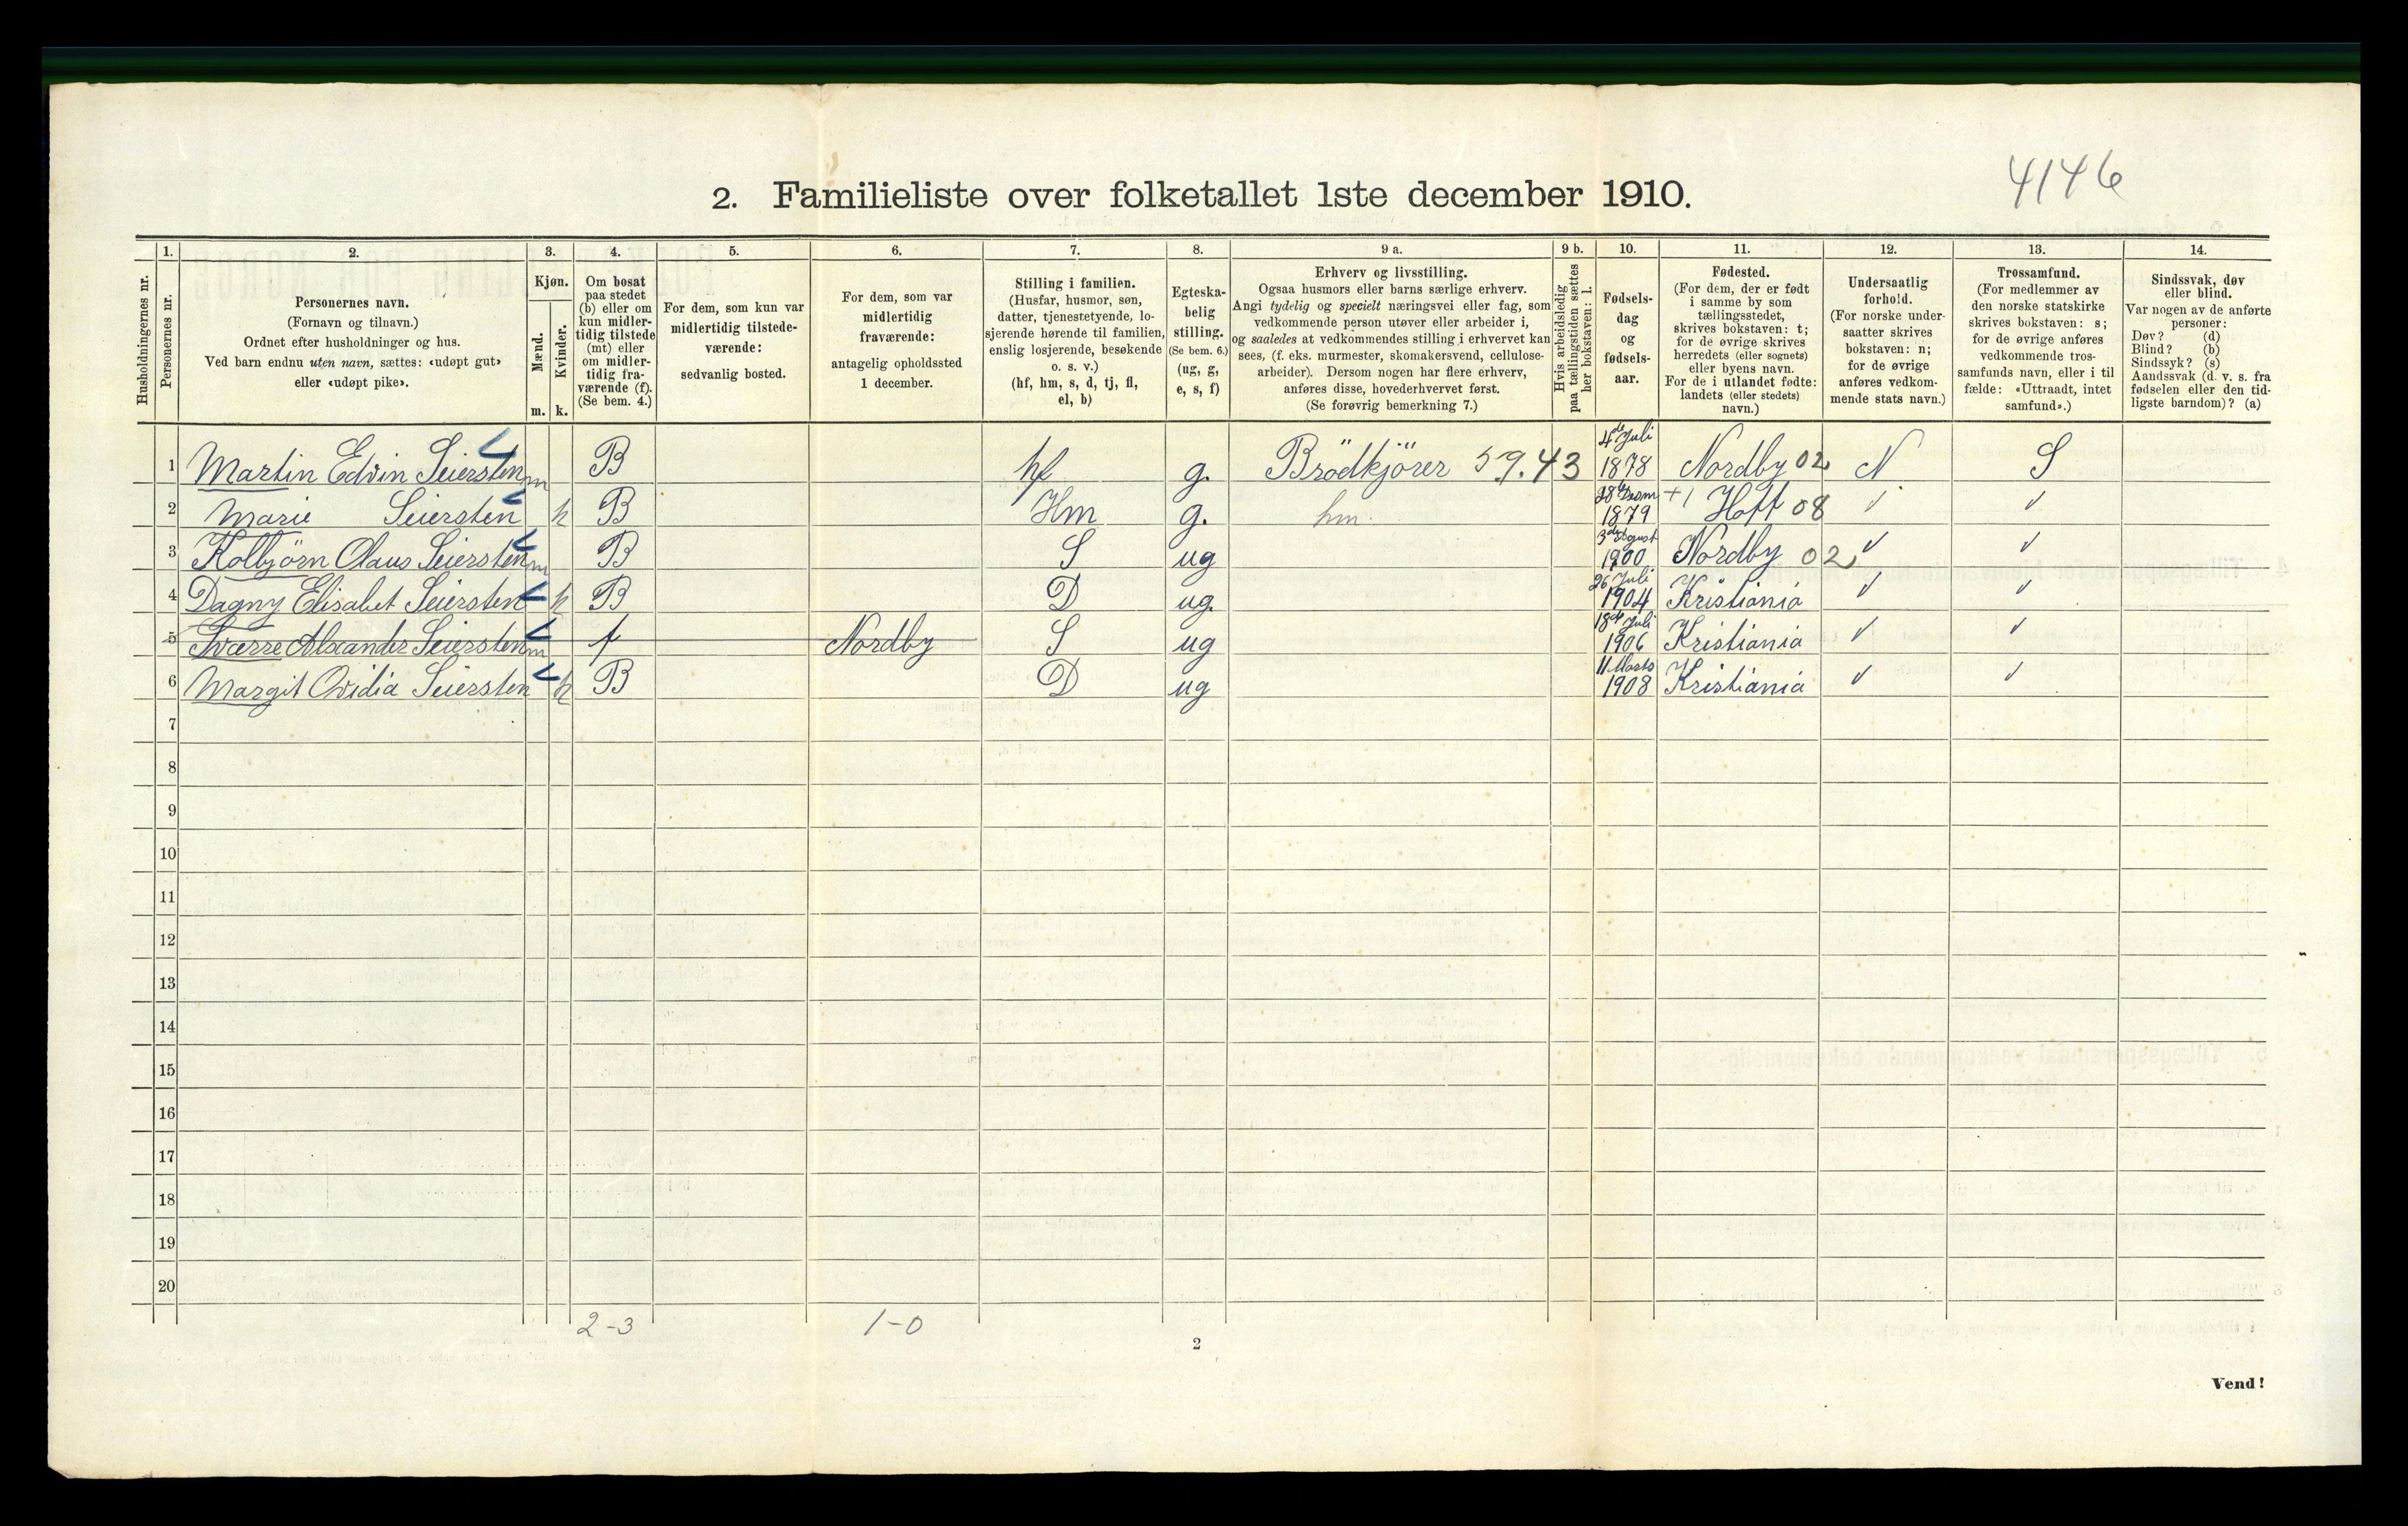 4146
2. Familieliste over folketallet 1ste december 1910.
1. 2. 3. 4. 5. 6. 7. 8. 9 a. 9 b. 10. 11. 12. 13. 14.
Husholdningernes nr.
Personernes nr.
Personernes navn.
(Fornavn og tilnavn.)
Ordnet efter husholdninger og hus.
Ved barn endnu uten navn, sættes: «udøpt gut»
eller «udøpt pike».
Kjøn.
Mænd.
Kvinder.
m. k.
Om bosat
paa stedet
(b) eller om
kun midler-
tidig tilstede
(mt) eller
om midler-
tidig fra-
værende (f).
(Se bem. 4.)
For dem, som kun var
midlertidig tilstede-
værende:
sedvanlig bosted.
For dem, som var
midlertidig
fraværende:
antagelig opholdssted
1 december.
Stilling i familien.
(Husfar, husmor, søn,
datter, tjenestetyende, lo-
sjerende hørende til familien,
enslig losjerende, besøkende
o. s. v.)
(hf, hm, s, d, tj, fl,
el, b)
Egteska-
belig
stilling.
(Se bem. 6.)
(ug, g,
e, s, f)
Erhverv og livsstilling.
Ogsaa husmors eller barns særlige erhverv.
Angi tydelig og specielt næringsvei eller fag, som
vedkommende person utøver eller arbeider i,
og saaledes at vedkommendes stilling i erhvervet kan
sees, (f. eks. murmester, skomakersvend, cellulose-
arbeider). Dersom nogen har flere erhverv,
anføres disse, hovederhvervet først.
(Se forøvrig bemerkning 7.)
Hvis arbeidsledig
paa tællingstiden sættes
her bokstaven: l.
Fødsels-
dag
og
fødsels-
aar.
Fødested.
(For dem, der er født
i samme by som
tællingsstedet,
skrives bokstaven: t;
for de øvrige skrives
herredets (eller sognets)
eller byens navn.
For de i utlandet fødte:
landets (eller stedets)
navn.)
Undersaatlig
forhold.
(For norske under-
saatter skrives
bokstaven: n;
for de øvrige
anføres vedkom-
mende stats navn.)
Trossamfund.
(For medlemmer av
den norske statskirke
skrives bokstaven: s;
for de øvrige anføres
vedkommende tros-
samfunds navn, eller i til
fælde: «Uttraadt, intet
samfund».)
Sindssvak, døv
eller blind.
Var nogen av de anførte
personer:
Døv? (d)
Blind? (b)
Sindssyk? (s)
Aandssvak (d. v. s. fra
fødselen eller den tid-
ligste barndom)? (a)
1 Martin Edvin Seiersten m B hf g. Brödkjörer 59.43 4de Juli 1878 Nordby 02 N S
2 Marie Seiersten k B Hm g. hm. 1879 +1 Hoff 08 ✓ ✓
3 Kolbjörn Olaus Seiersten m B S ug 3de August 1900 Nordby 02 ✓ ✓
4 Dagny Elisabet Seiersten k B D ug. 26 Juli 1904 Kristiania ✓ ✓
5 Sværre Alexander Seiersten m f Nordby S ug 18de Juli 1906 Kristiania ✓ ✓
6 Margit Ovidia Seiersten k B D ug 11 Marts 1908 Kristiania ✓ ✓
7
8
9
10
11
12
13
14
15
16
17
18
19
20
2-3 1-0
2
Vend!